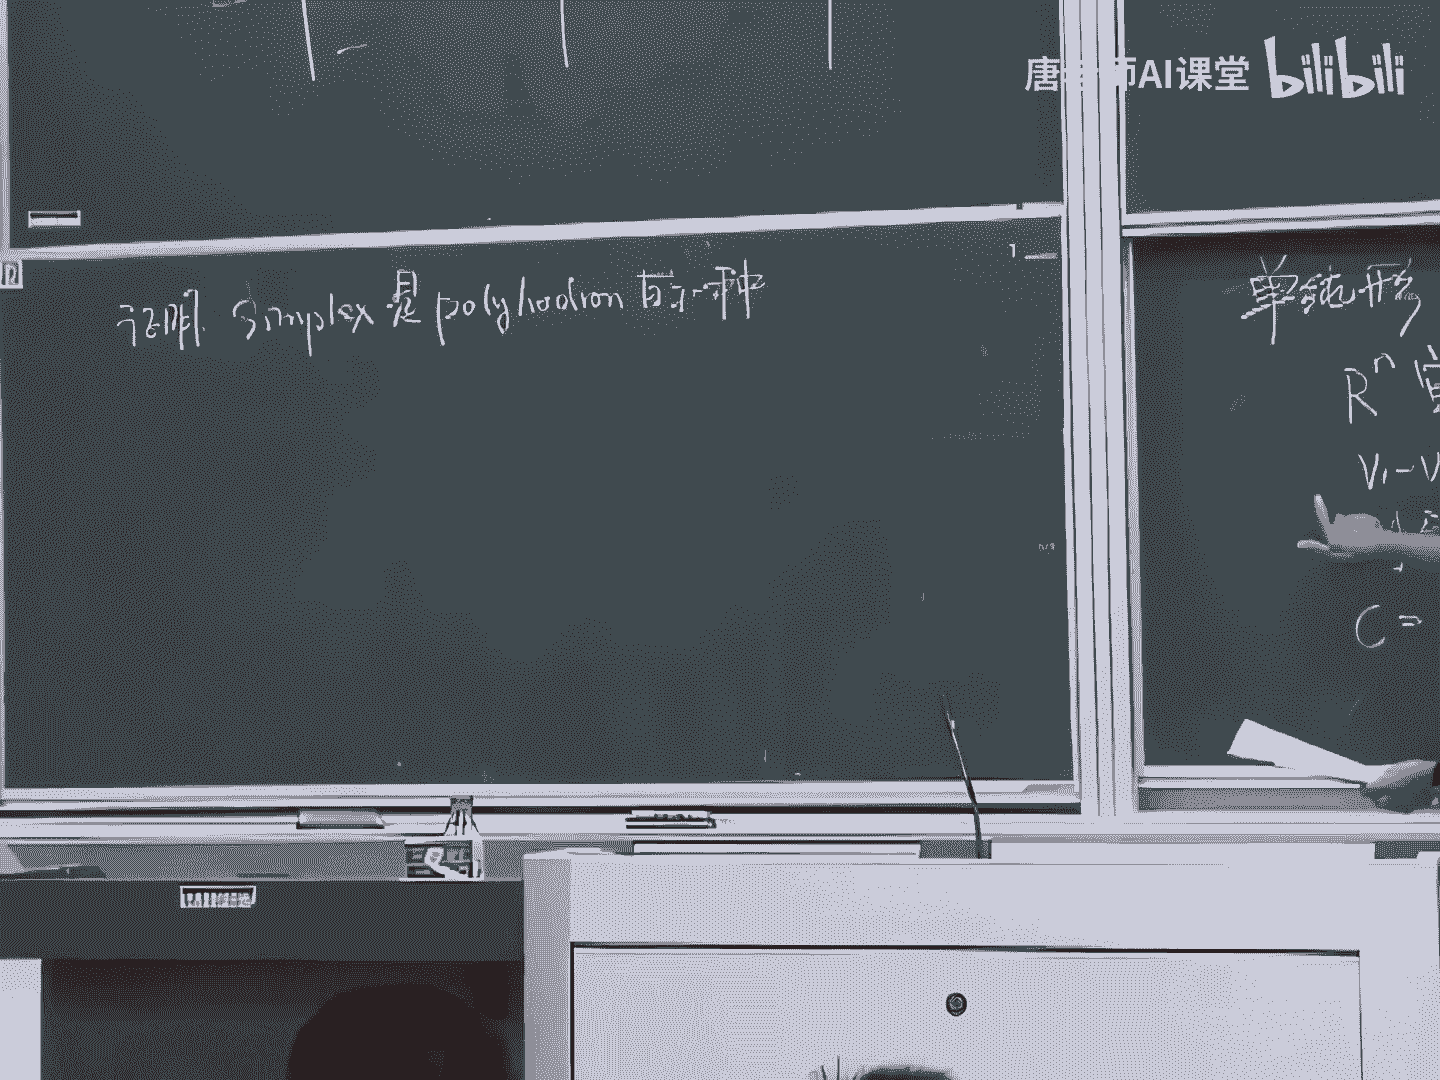 唐 师AI课堂 bilibili
证明. Simplex 是 polyhedron 的一种
单纯形
R^n
V₁-V
C =